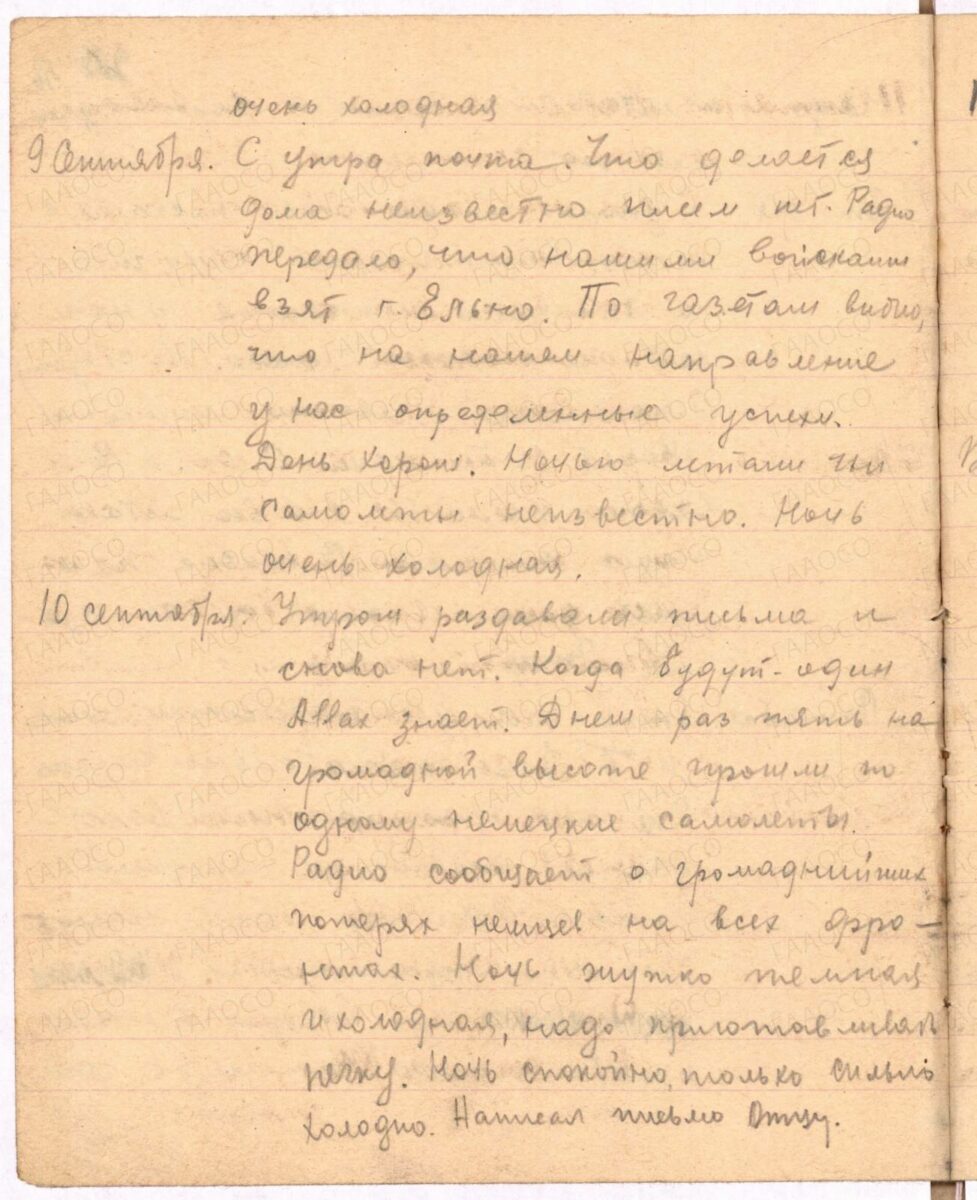 очень холодная
9 Сентября. С утра почта. Что делается
дома неизвестно писем нет. Радио
передало, что нашими войсками
взят г. Ельно. По газетам видно,
что на нашем направление
у нас определенные успехи.
День хорош. Ночью летали ли
самолеты неизвестно. Ночь
очень холодная.
10 сентября. Утром раздавали письма и
снова нет. Когда будут - один
Allax знает. Днем раз пять на
громадной высоте прошли по
одному немецкие самолеты.
Радио сообщает о громаднийших
потерях немцев на всех фро-
нтах. Ночь жутко темная
и холодная, надо приготавливать
печку. Ночь спокойно, только сильно
холодно. Написал письмо Отцу.
ГААОСО